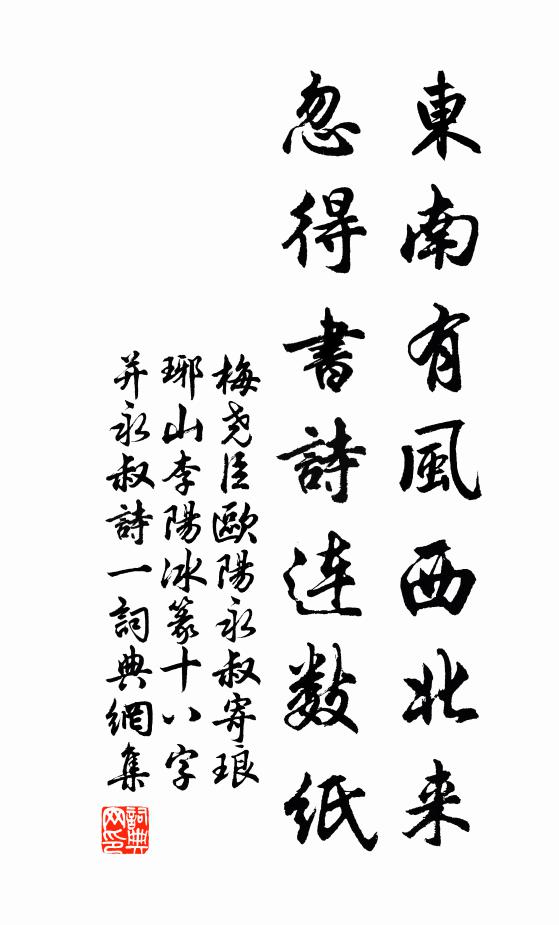 東南有風西北来
忽得書詩连数纸
梅尧臣歐陽永叔寄琅
琊山李陽冰篆十八字
并永叔詩一詞典網集
詞典
网印